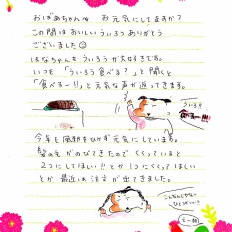 おばあちゃんへ お元気にしてますか？
この間はおいしいういろうありがとう
ございました
はなちゃんもういろうが大好きです。
いつも「ういろう食べる？」と聞くと
「食べるー!!」と元気な声が返ってきます。
ういろ!!
食べるー!!!
今年も風邪をひかず元気にしています。
髪の毛がのびてきたのでくくっていると
2つにしてほしい!!とか1つにくくてほしい
とか最近は注文が出てきました。